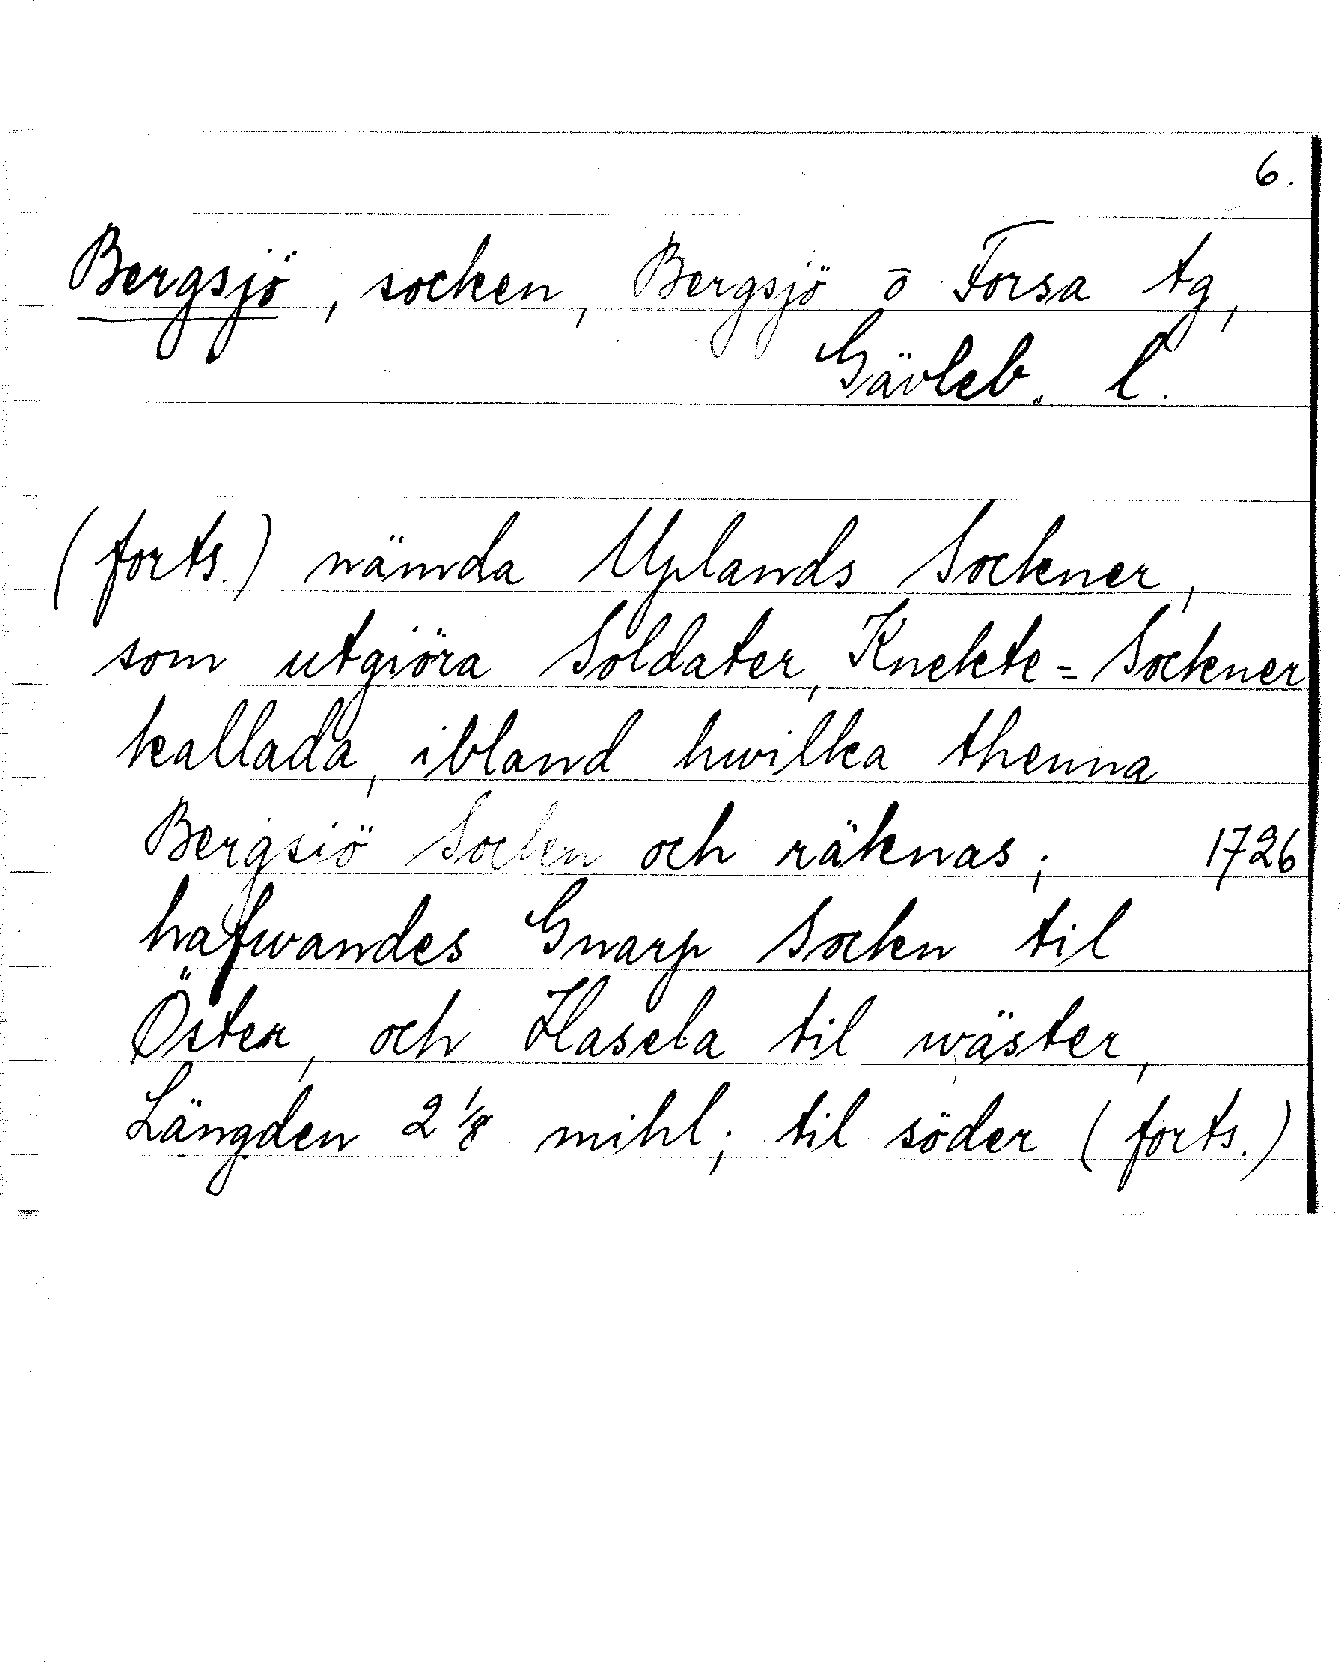 6.
Bergsjö, socken, Bergsjö o Forsa tg,
Gävleb. l.
(forts.) nämda Uplands Sockner,
som utgiöra Soldater, Knekte=Sockner
kallada, ibland hwilka thenna
Bergsiö Socken och räknas; 1726
hafwandes Gnarp Socken til
Öster, och Hasela til wäster,
Längden 2 1/8 mihl; til söder (forts.)